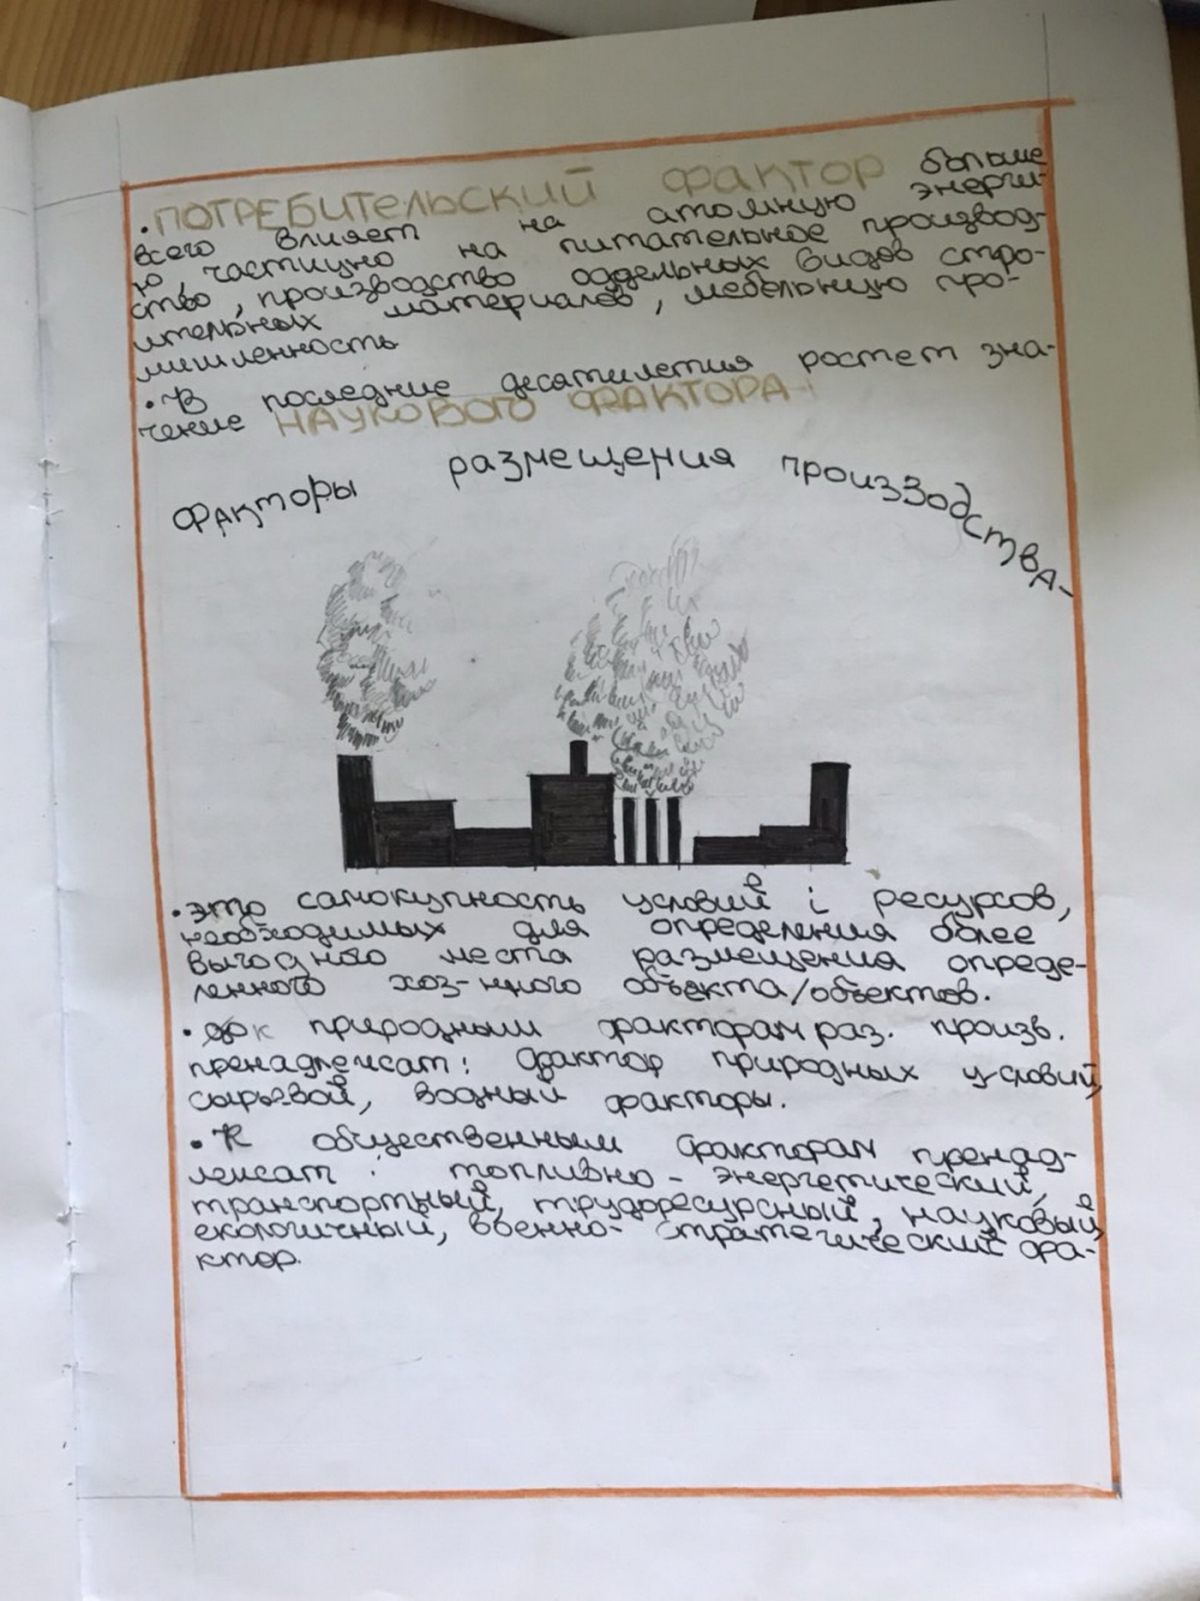 ·ПОТРЕБИТЕЛЬСКИЙ ФАКТОР больше
всего влияет на атомную энерги-
ю, частично на питательное производ-
ство, производство оддельных видов стро-
ительных материалов, мебельную про-
мишленность
·В последние десятилетия ростет зна-
чение НАУКОВОГО ФАКТОРА!
Факторы размещения производства-
·это самокупность условий і ресурсов,
необходимых для определения более
выгодного места размещения опреде-
ленного хоз-нного объекта/объектов.
· к природным факторам раз. произв.
пренадлежат: фактор природных условий,
сырьевой, водный факторы.
·К общественным факторам пренад-
лежат: топливно-энергетический,
транспортный, трудоресурсный, науковый,
екологичный, военно-стратегический фа-
ктор.